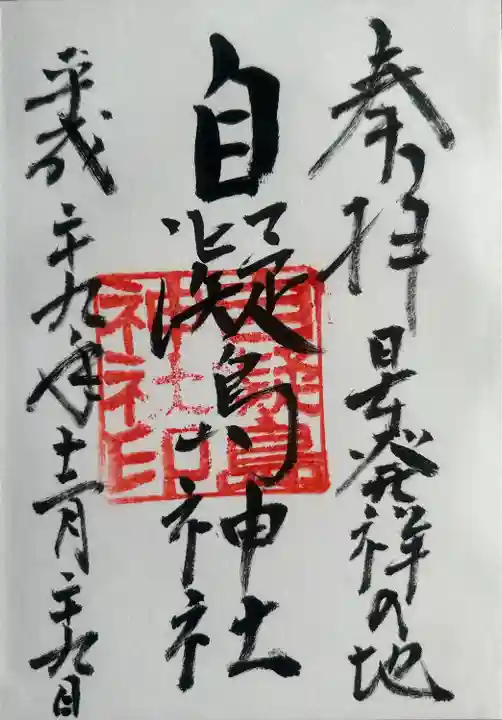 奉拝
日本発祥の地
自凝島神社
自凝島
神社印
平成二十九年十二月二十九日